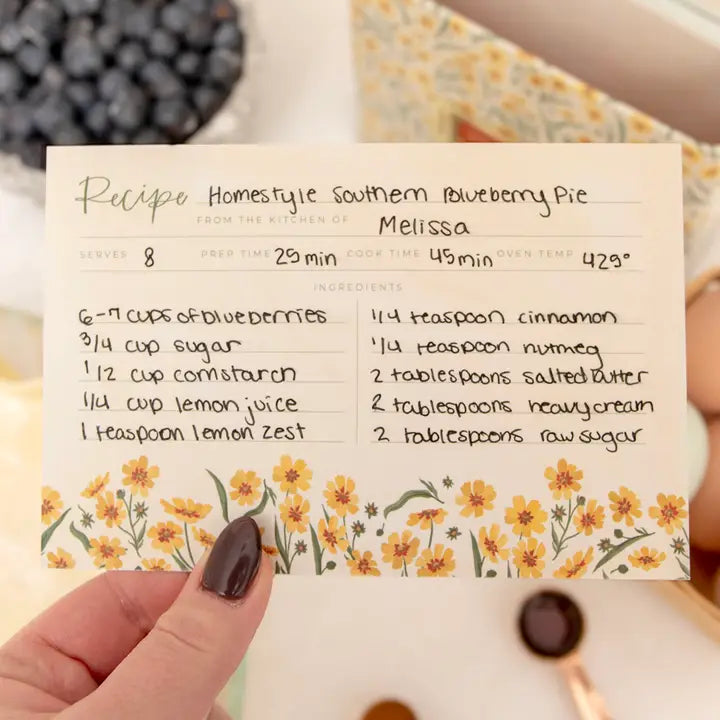 Recipe Homestyle Southern Blueberry Pie
FROM THE KITCHEN OF Melissa
SERVES 8 PREP TIME 25 min COOK TIME 45 min OVEN TEMP 425°
INGREDIENTS
6-7 cups of blueberries
3/4 cup sugar
1/2 cup cornstarch
1/4 cup lemon juice
1 teaspoon lemon zest
1/4 teaspoon cinnamon
1/4 teaspoon nutmeg
2 tablespoons salted butter
2 tablespoons heavy cream
2 tablespoons raw sugar